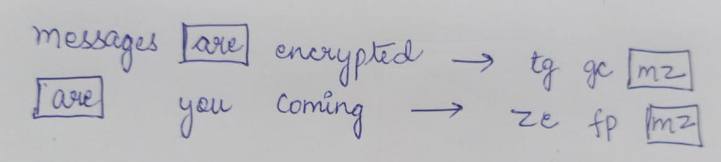 messages are encrypted → tg gc mz
are you coming → ze fp mz